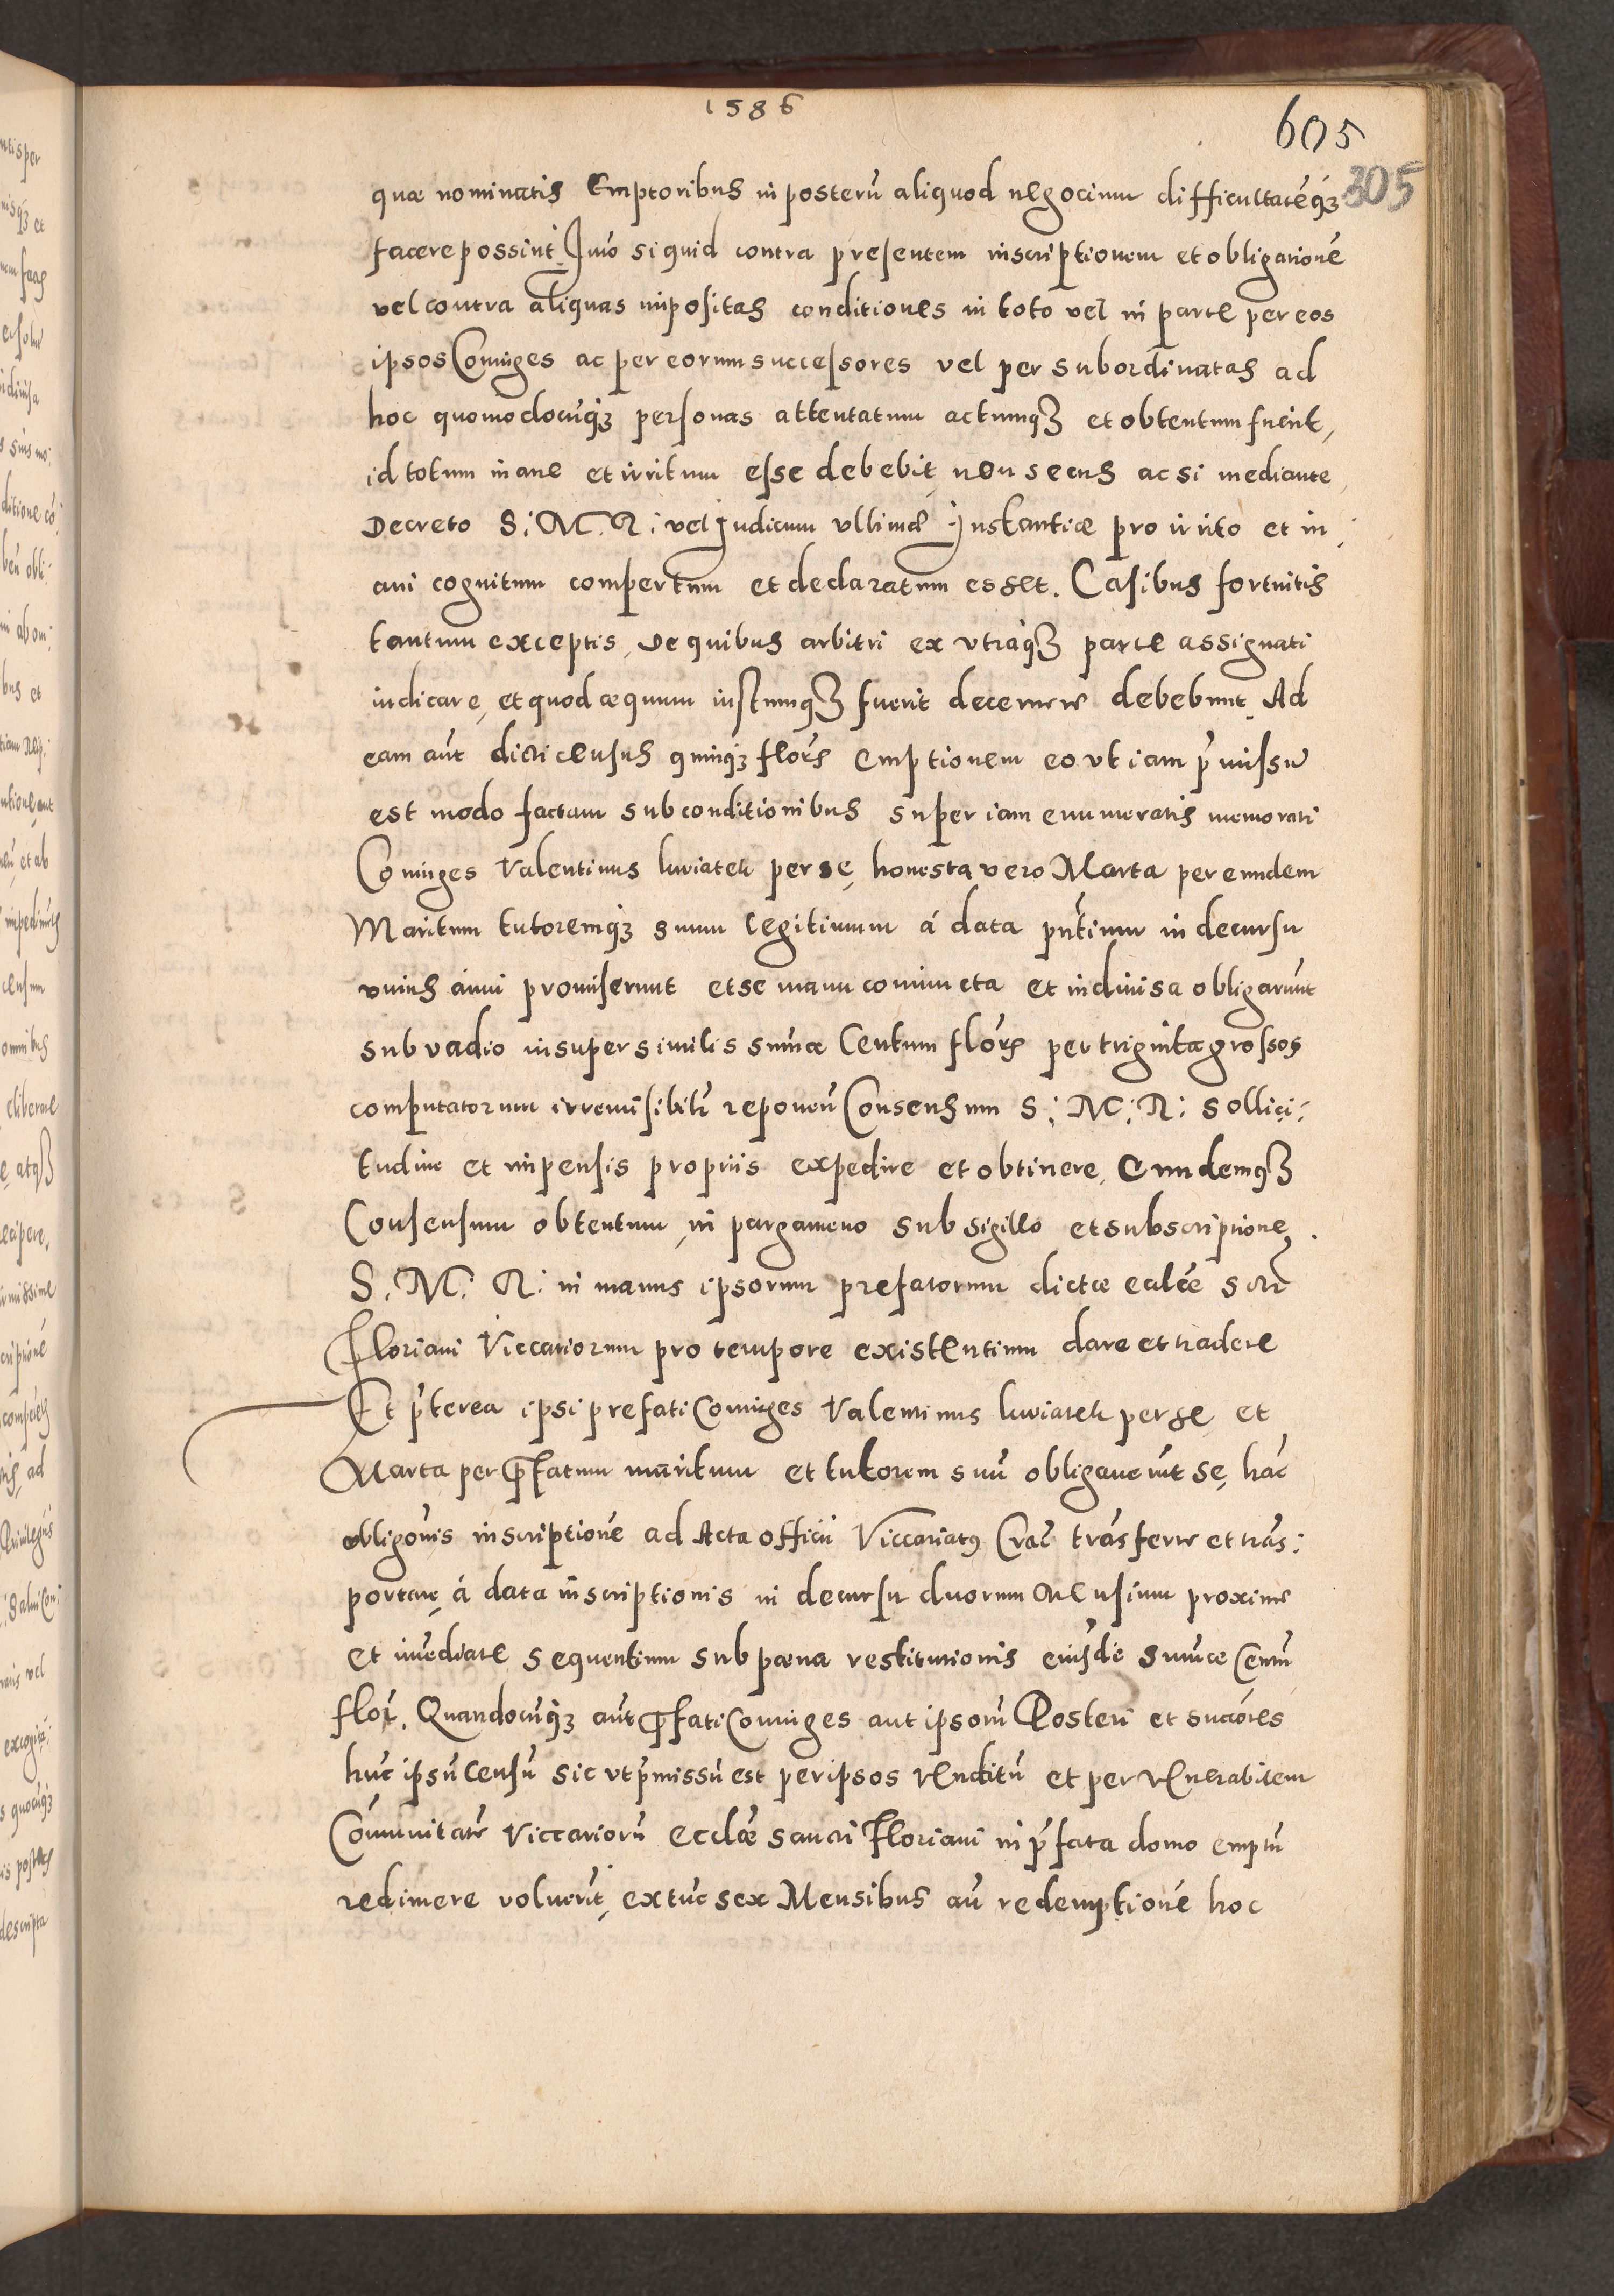 1586
605
305
quæ nominatis Emptoribus in posterū aliquod negocium difficultatēq3
facere possint. Imo si quid contra presentem inscriptionem et obligationē
vel contra aliquas impositas conditiones in toto vel in parte per eos
ipsos Coniuges ac per eorum successores vel per subordinatas ad
hoc quomodocūq3 personas attentatum actumq3 et obtentum fuerit,
id totum inane et irritum esse debebit, non secus ac si mediante
Decreto S: M. R: vel Iudicum vltimæ Instantiæ pro irrito et in:
ani cognitum compertum et declaratum esset. Casibus fortuitis
tantum exceptis, de quibus arbitri ex vtraq3 parte assignati
iudicare, et quod æquum iustumq3 fuerit decernere debebunt. Ad
eam aūt dicti census quinq3 flors Emptionem eo vt iam p̄missū
est modo factam sub conditionibus superiam enumeratis memorati
Coniuges Valentinus luviatek per se, honesta vero Marta per eundem
Maritum tutoremq3 suum legitimum á data pn̄tium in decursu
vnius anni promiserunt et se manu coniuncta et indiuisa obligarūnt
sub vadio insuper similis sum̄æ Centum flors per triginta grossos
computatorum irremisibilr̄ reponen̄ Consensum S: M: R: sollici:
tudine et impensis propriis expedire et obtinere, Eundemq3
Consensum obtentum, in pargameno sub sigillo et subscriptione
S. M. R: in manus ipsorum prefatorum dictæ ecclēe Scti
Floriani Viccariorum pro tempore existentium dare et tradere
Et p̄terea ipsi prefati Coniuges Valentinus luviatek per se, et
Marta per p̄fatum maritum et tutorem suū obligauerūt se, hāc
obligōnis inscriptionē ad Acta officii Viccariatus Crac̄ trāsferre et trās:
portare, á data inscriptionis in decursu duorum Mensium proxime
et im̄ediate sequentium sub pœna restitutionis eiusdē sum̄æ Centū
flor̄. Quandocūq3 aūt p̄fati Coniuges aut ipsorū Posteri et succōres
hūc ipsū Censū sic vt p̄missū est per ipsos venditū et per venerabilem
Com̄unitatē Viccariorū ecclæ sancti Floriani in p̄fata domo emptū
redimere voluerīt, ex tūc sex Mensibus an̄ redemptionē hoc